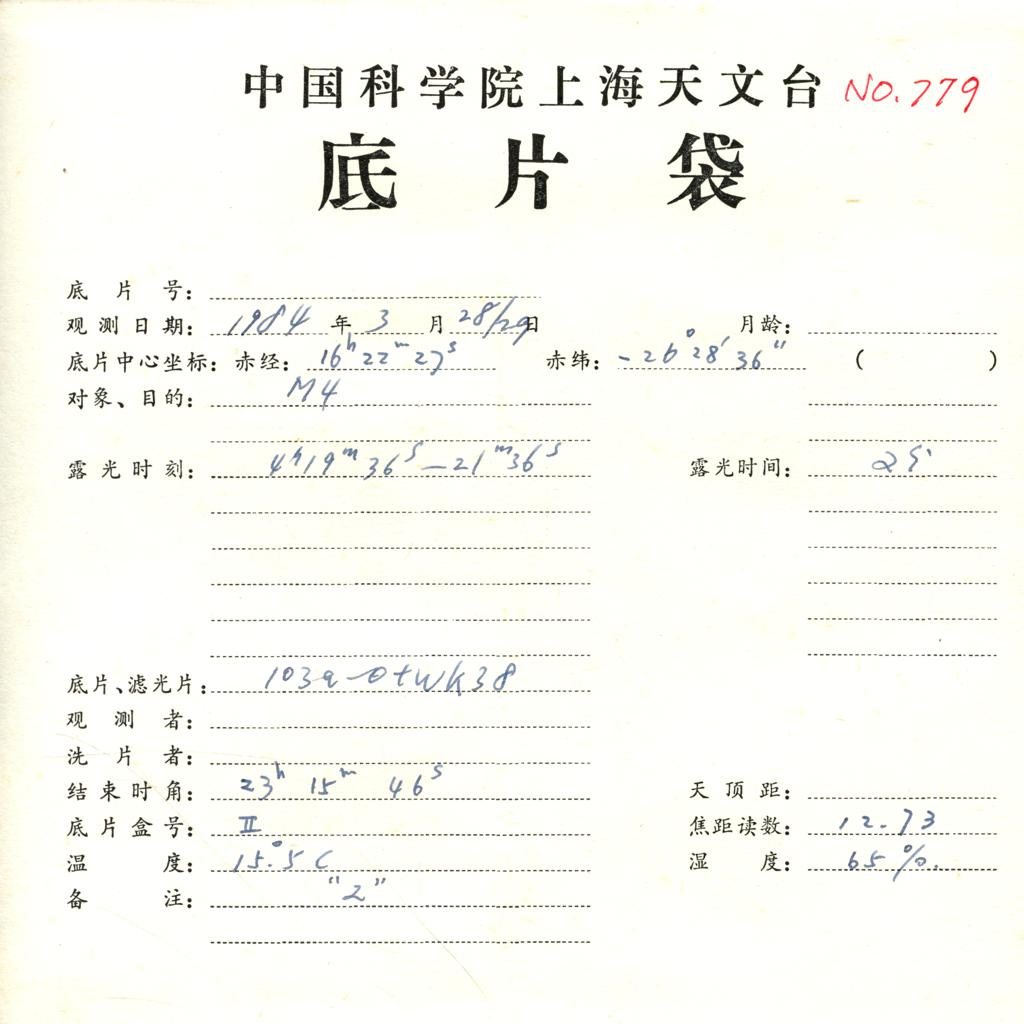 中国科学院上海天文台 NO.779
底片袋
底片号:
观测日期: 1984 年 3 月 28/29 日 月龄:
底片中心坐标: 赤经: 16h 22m 27s 赤纬: -26° 28′ 36″ ( )
对象、目的: M4
露光时刻: 4h19m 36s — 21m36s 露光时间:
底片、滤光片: 103a-O+WK38
观测者:
洗片者:
结束时角: 23h 15m 46s 天顶距:
底片盒号: II 焦距读数: 12.73
温度: 15.°5 C 湿度: 65%.
备注: “2”